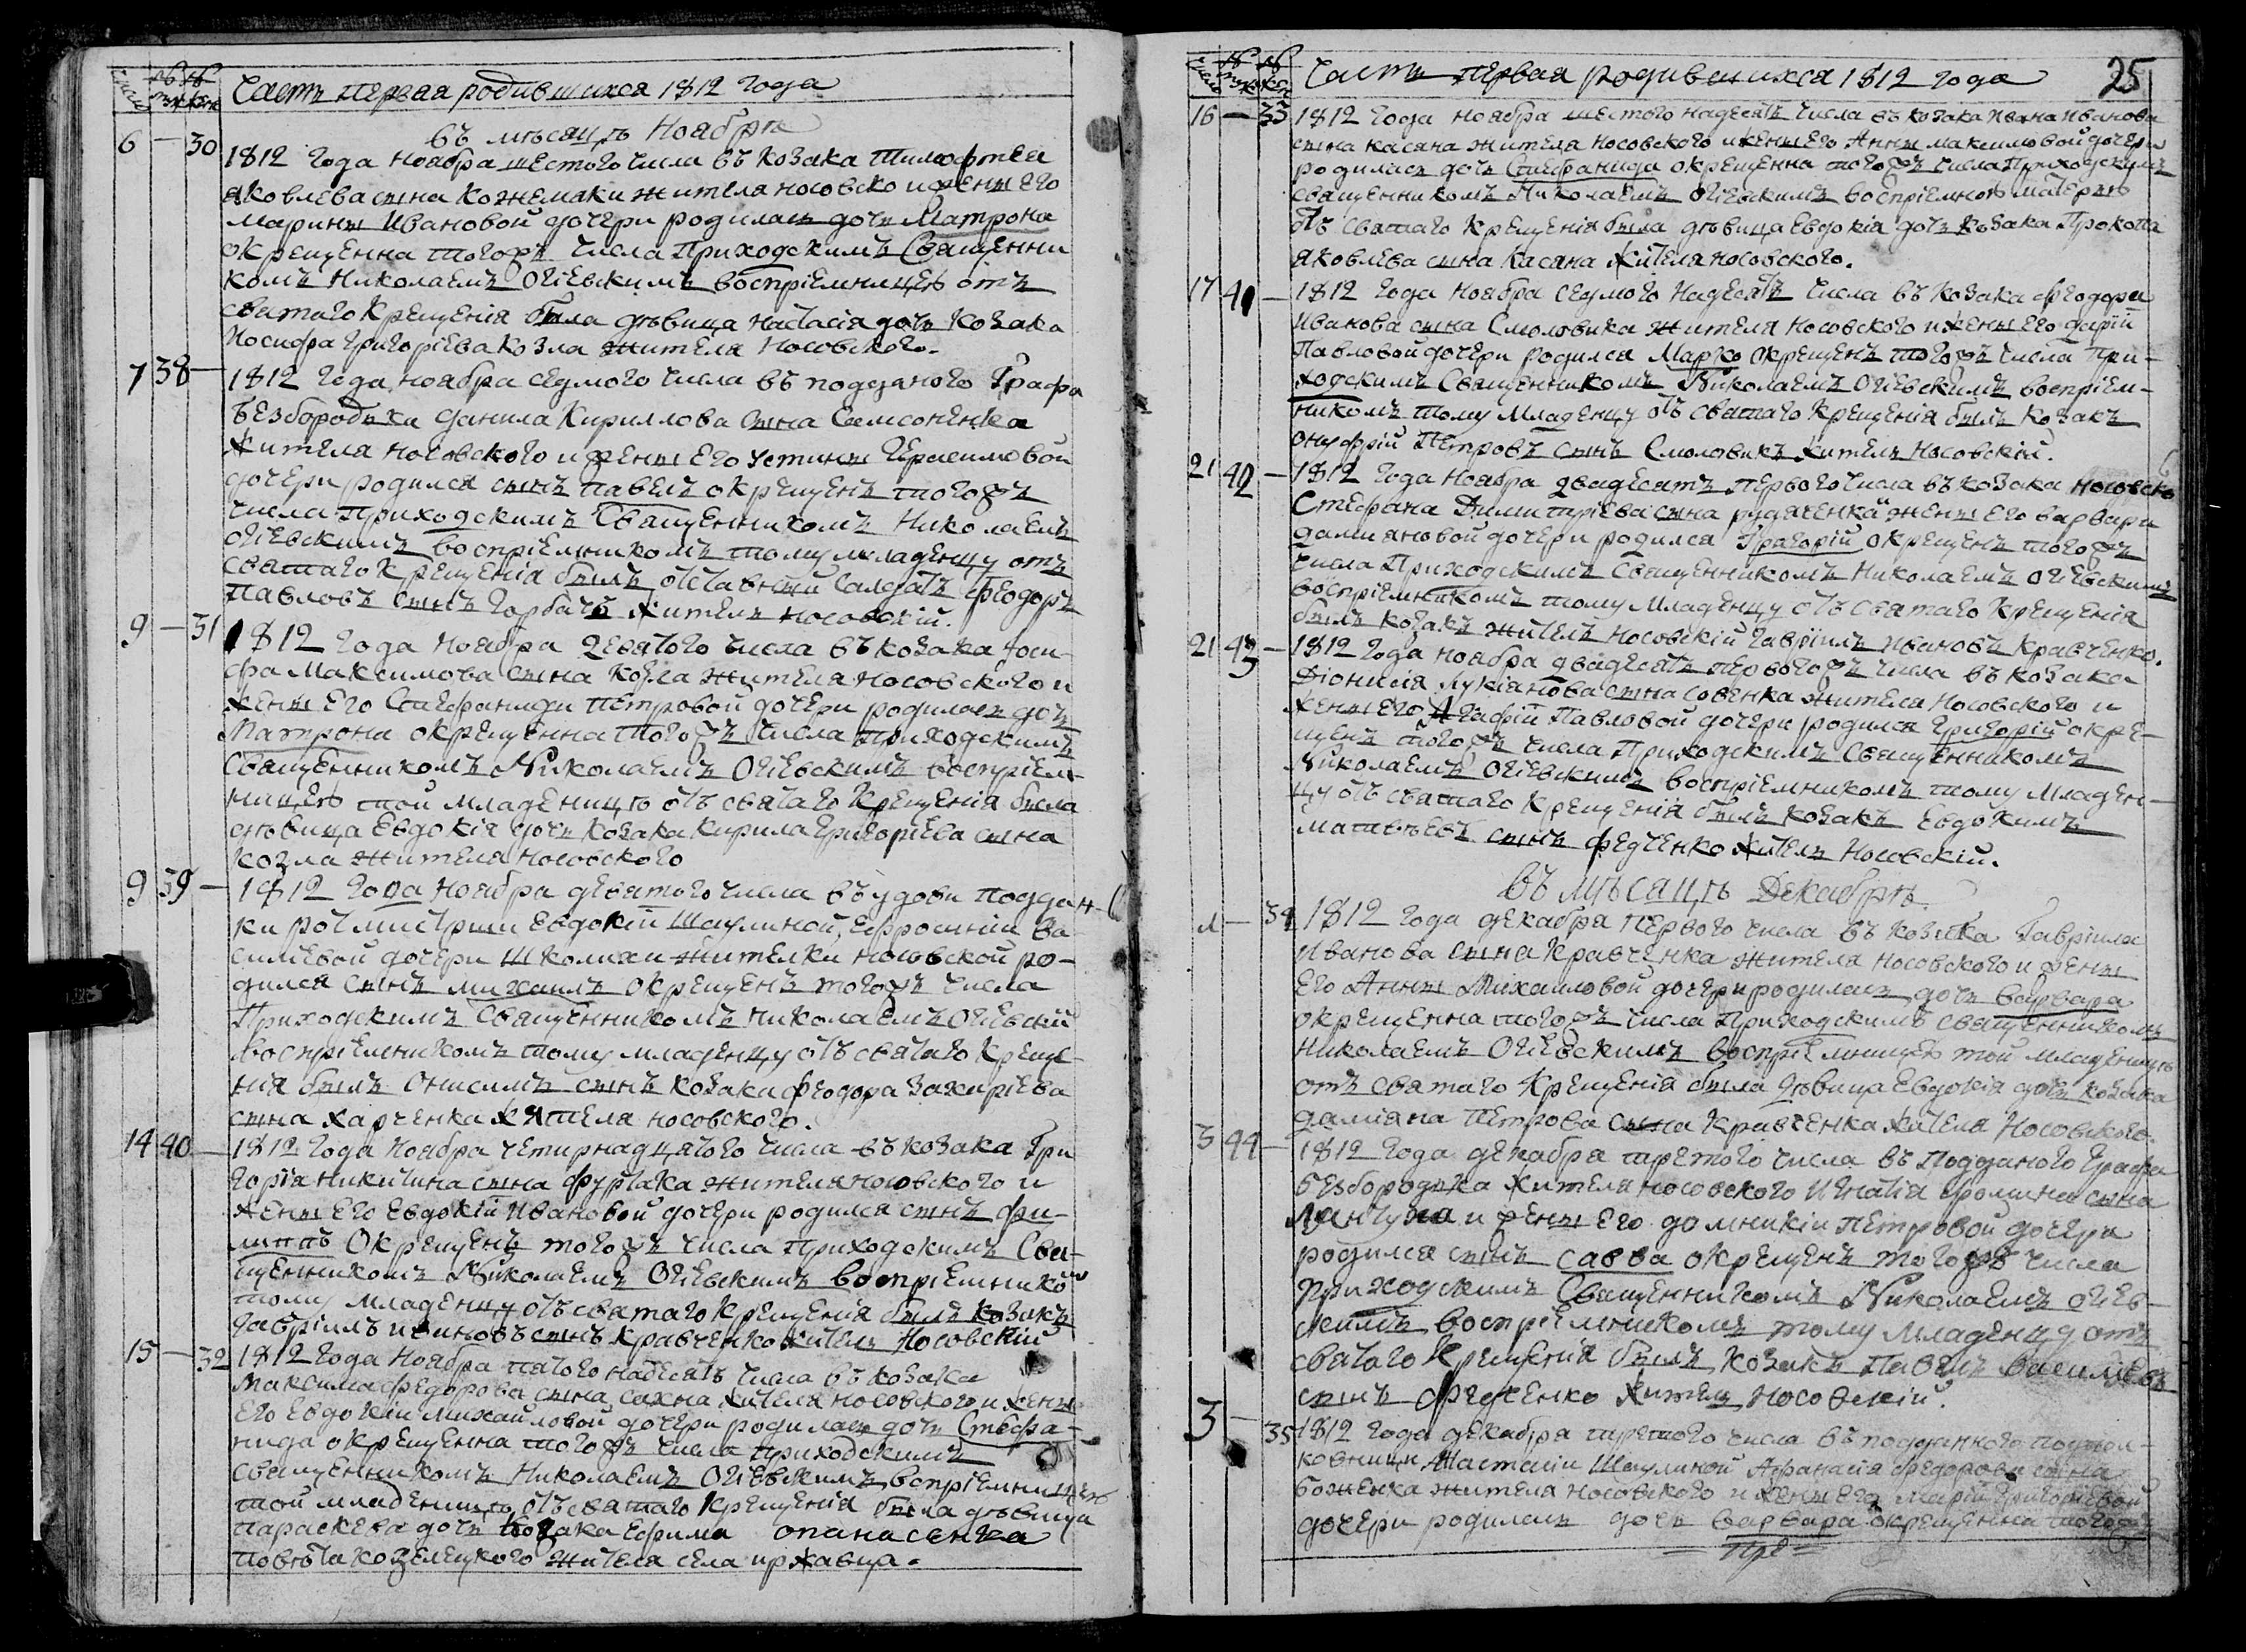 числа муж жен Часть первая родившихся 1812 года
въ мѣсяцѣ Ноябрѣ
6 — 30 1812 года ноября шестого числа въ козака Тимофтея
яковлева сына кожемяки жителя носовско и жены его
марины Ивановой дочери родилась дочь Матрона
окрещенна того жъ числа Приходскимъ Священни
комъ Николаемъ Огіевскимъ воспріемницею отъ
святаго Крещенія была дѣвица Настасія дочь козака
Иосифа григоріева козла жителя Носовского.
7 38 — 1812 года ноября седмого числа въ подданого Графа
Безбородька данила Кириллова сына Самсоненка
жителя носовского и жены его устины Герасимовой
дочери родился сынъ павелъ окрещенъ того жъ
числа приходскимъ Священникомъ Николаемъ
огіевскимъ воспріемникомъ тому младенцу отъ
святаго крещенія былъ отставный Салдатъ Феодоръ
Павловъ сынъ горбачъ житель носовскій.
9 — 31 1812 года ноября девятого числа въ козака Иоси-
фа Максимова сына козла жителя носовского и
жены его Стефаниды петровой дочери родилась дочь
Матрона окрещенна того жъ числа приходскимъ
Священникомъ Николаемъ Огіевскимъ воспріем-
ницею той младеницѣ отъ святаго Крещенія была
дѣвица Евдокія дочь козака кирила григоріева сына
козла жителя носовского
9 39 — 1812 года ноября девятого числа въ удови поддан-
ки ротмистрши Евдокіи Шаулиной, Ефросиніи Ва-
силіевой дочери Школихи жителки носовской ро-
дился сынъ михаилъ окрещенъ того жъ числа
Приходскимъ Священникомъ николаемъ Огіевскій
воспріемникомъ тому младенцу отъ святаго креще-
нія былъ Онисимъ сынъ козака феодора Захаріева
сына харченка жителя носовского.
14 40 — 1812 года ноября четирнадцятого числа въ козака Гри
горія Никитина сына фурмака жителя носовского и
жены его Евдокіи Ивановой дочери родился сынъ фи-
липпъ окрещенъ того жъ числа приходскимъ Свя-
щенникомъ Николаемъ Огіевскимъ воспріемнико
тому младенцу отъ святаго крещенія былъ козакъ
гавріилъ ивановъ сынъ кравченко житель Носовскій
15 — 32 1812 года ноября пятого надесять числа въ козака
Максима федорова сына сахна жителя носовского и жены
его Евдокіи михаиловой дочери родилась дочь Стефа-
нида окрещенна того жъ числа приходскимъ
священникомъ Николаемъ Огіевскимъ вспріемницею
той младеницѣ отъ святаго крещенія была дѣвица
параскева дочь козака ефрима опанасенка
повѣта козелецкого жителя села иржавца.
числа муж жен Часть первая родившихся 1812 года 25
16 — 33 1812 года ноября шестого надесять числа въ козака Ивана Иванова
сына касяна жителя носовского и жены его Анны максимовой дочери
родилась дочь Стефанида окрещенна того жъ числа Приходскимъ
священникомъ Николаемъ Огіевскимъ воспріемною матерью
отъ святаго крещенія была дѣвица Евдокія дочь козака Прокопа
яковлева сына Касяна жителя носовского.
17 41 — 1812 года ноября седмого надесять числа въ козака феодора
Иванова сына Смоловика жителя носовского и жены его даріи
Павловой дочери родился Марко окрещенъ того жъ числа при-
ходскимъ Священникомъ Николаемъ Огіевскимъ воспріем-
никомъ тому младенцу отъ святаго крещенія былъ козакъ
онуфрій Петровъ сынъ Смоловикъ житель Носовскій.
21 42 — 1812 года ноября двадесять первого числа въ козака носовско
Стефана Димитріева сына рудченка и жены его варвари
даміяновой дочери родился Григорій окрещенъ того жъ
числа Приходскимъ священникомъ Николаемъ Огіевскимъ
воспріемникомъ тому младенцу отъ святаго крещенія
былъ козакъ житель носовскій гавріилъ ивановъ Кравченко.
21 43 — 1812 года ноября двадесять первого жъ числа въ козака
Діонисія Лукіянова сына совенка жителя носовского и
жены его Агафіи Павловой дочери родился григорій окре-
щенъ того жъ числа Приходскимъ Священникомъ
Николаемъ Огіевскимъ воспріемникомъ тому младен-
цу отъ святаго крещенія былъ козакъ Евдокимъ
матвѣевъ сынъ федченко житель носовскій.
въ мѣсяцѣ Декабрѣ
1 — 34 1812 года декабря первого числа въ козака Гавріила
Иванова сына кравченка жителя носовского и жены
его Анны Михаиловой дочери родилась дочь варвара
окрещенна того жъ числа приходскимъ священникомъ
николаемъ Огіевскимъ воспріемницею той младеницѣ
отъ святаго Крещенія была дѣвица Евдокія дочь козака
даміяна петрова сына кравченка жителя Носовского.
3 44 — 1812 года декабря третого числа въ подданого Графа
безбородька жителя носовского Игнатія фомина сына
и жены его домникіи петровой дочери
родился сынъ савва окрещенъ того жъ числа
приходскимъ священникомъ Николаемъ Огіев-
скимъ воспріемникомъ тому младенцу отъ
святаго Крещенія былъ козакъ Павелъ василіевъ
сынъ федченко житель носовскій.
3 — 35 1812 года декабря третого числа въ подданного подпол-
ковници Настасіи Шаулиной Афанасія федорова сына
боженка жителя носовского и жены его маріи григоріевой
дочери родилась дочь варвара окрещенна того жъ
= при =